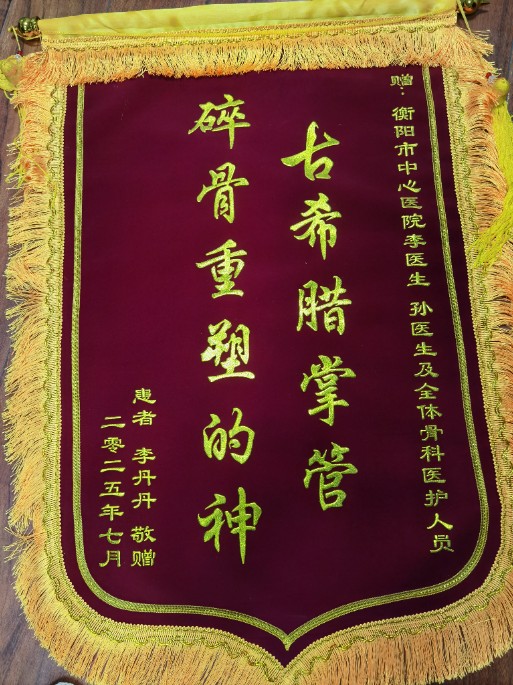 赠：衡阳市中心医院李医生 孙医生及全体骨科医护人员
古希腊掌管
碎骨重塑的神
患者 李丹丹 敬赠
二零二五年七月